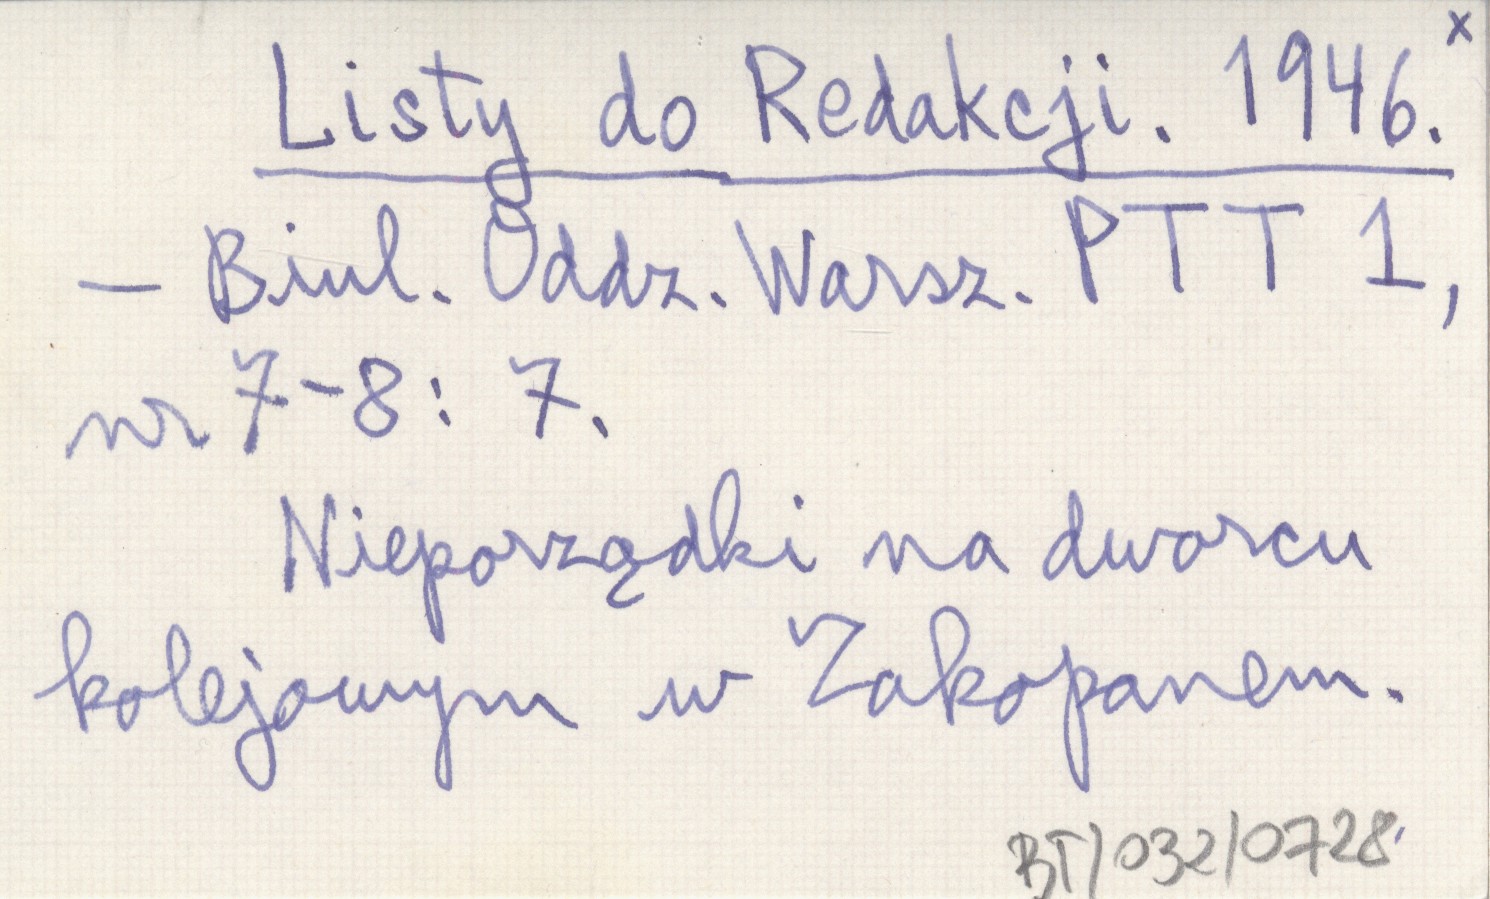 x
Listy do Redakcji. 1946.
— Biul. Oddz. Warsz. PTT 1,
nr 7-8: 7.
Nieporządki na dworcu
kolejowym w Zakopanem.
BT/032/0728